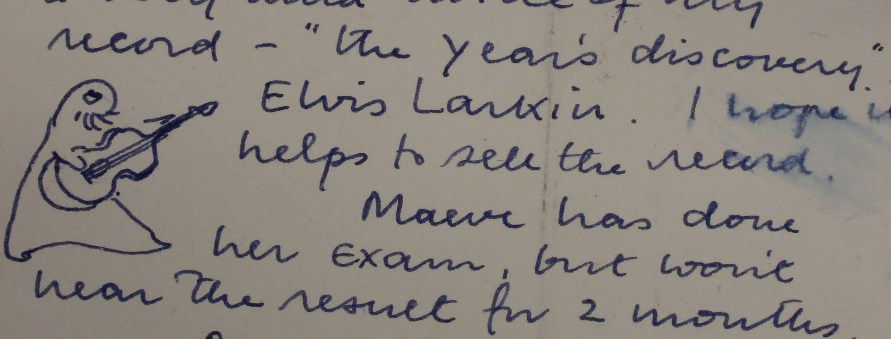 of my
record - "the year's discovery".
Elvis Larkin. I hope i
helps to sell the record.
Maeve has done
her exam, but won't
hear the result for 2 months.